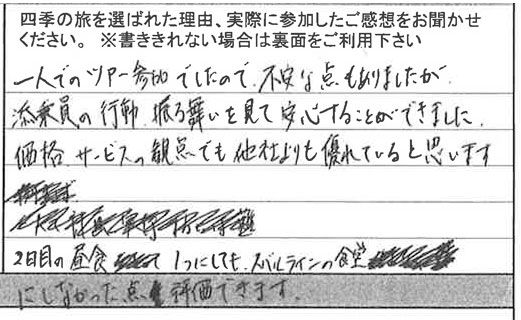 四季の旅を選ばれた理由、実際に参加したご感想をお聞かせ
ください。 ※書ききれない場合は裏面をご利用下さい
一人でのツアー参加でしたので、不安な点もありましたが、
添乗員の行動、振る舞いを見て安心することができました。
価格、サービスの観点でも他社よりも優れていると思います
2日目の昼食 1つにしても、スバルラインの食堂
にしなかった点 評価できます。